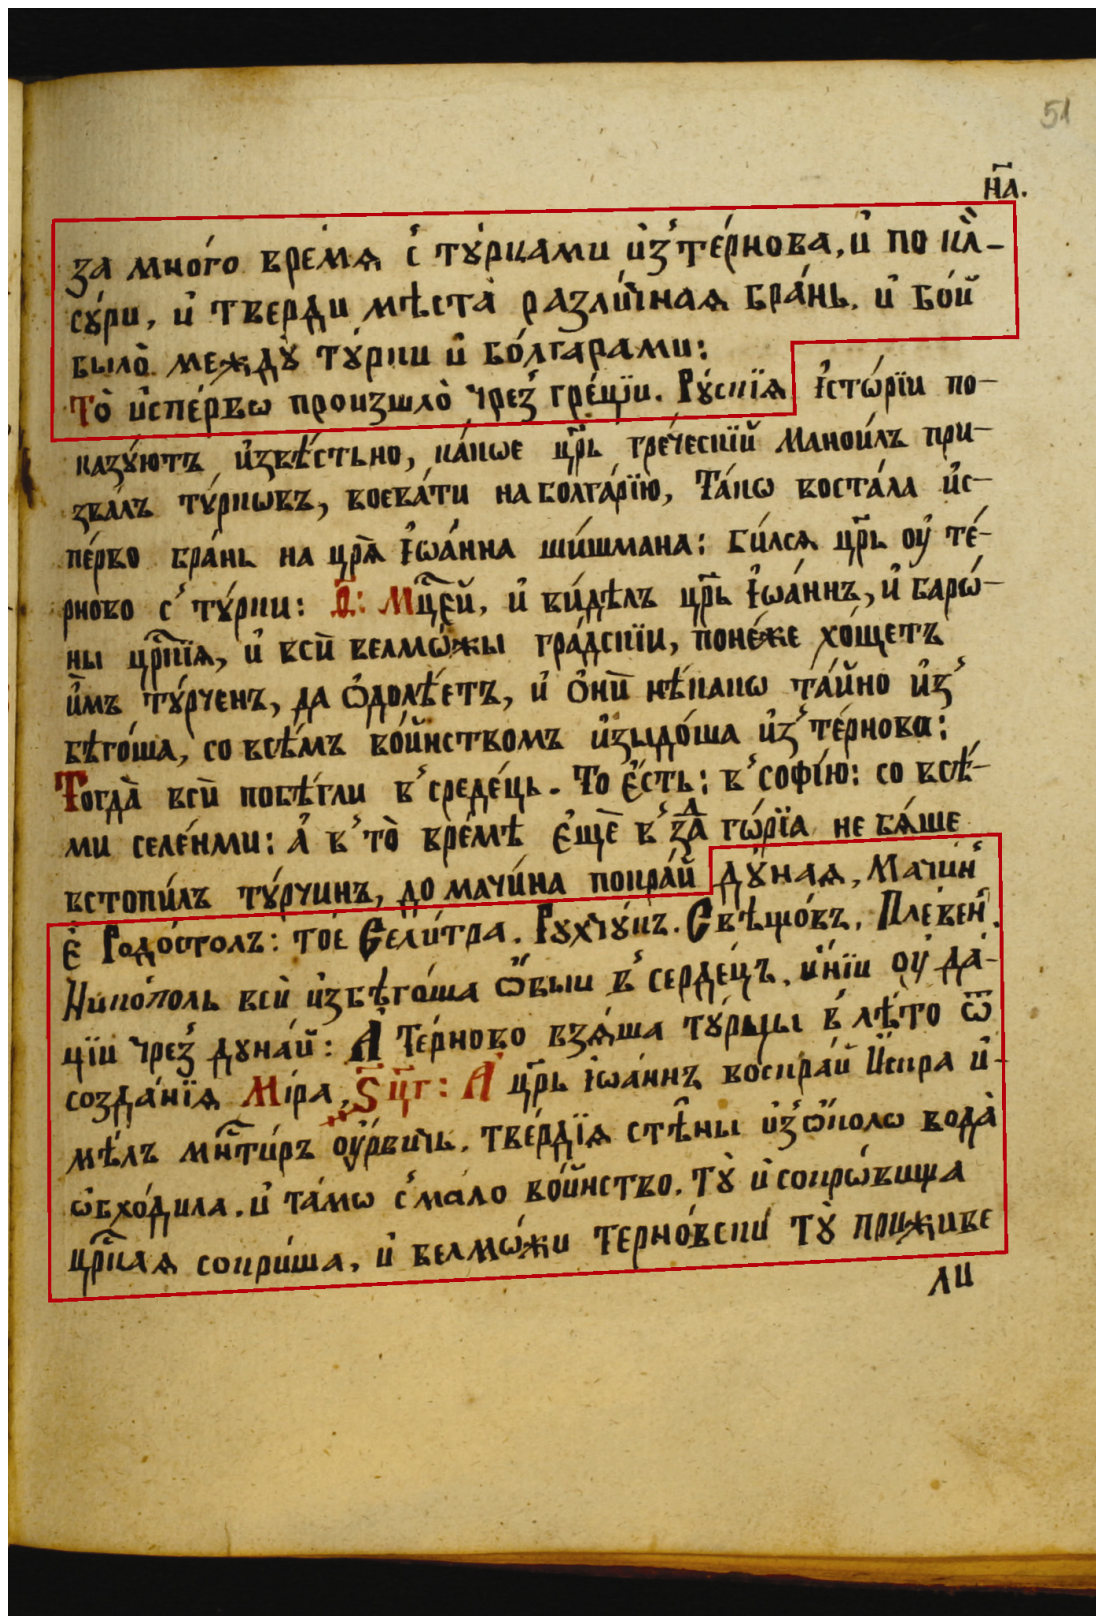 51
н҃а.
за мно́го вре́мѧ с̾ тꙋ́рками и҆з̾ те́рнова, и҆ по кл̀-
сꙋ́ри, и҆ тверди мѣста̀ разли́чнаѧ бра́нь. и҆ бо́й
было̀ междꙋ̀ тꙋ́рки и҆ бо́лгарами:
То̀ и҆спе́рвѡ произшло̀ чрез̾ гре́цїи. Рꙋ́скїѧ і҆сто́рїи по-
казꙋ́ютъ и҆звѣ́стьно, ка́кое цр҃ь гре́ческїй маноилъ при-
зва́лъ тꙋ́ркѡвъ, воева́ти на болга́рїю, Та́кѡ воста́ла и҆с-
пе́рво бра́нь на цр҃ѧ̀ і҆ѡа́нна ши́шмана: би́лсѧ цр҃ь ᲂу҆ те́-
рново с̾ тꙋ́рки: д҃: Мц҃ей, и҆ ви́дѣлъ цр҃ь і҆ѡа́ннъ, и҆ барѡ́-
ны цр҃кїѧ, и҆ всѝ велмѡ́жы гра́дскїи, поне́же хо́щетъ
и҆̀мъ тꙋ́рченъ, да ѡ҆долѣ́етъ, и҆ ѻ҆нѝ нѣ́какѡ та́йно и҆з̾
бѣго́ша, со всѣ́мъ во́йнствомъ и҆зыдо́ша и҆з̾ те́рнова:
Тогда̀ всѝ побѣ́гли в̾ средѐць. То є҆́сть: в̾ софі́ю: со всѣ́-
ми селе́нми: а҆ в̾ то̀ вре́мѣ є҆щѐ в̾ заⷣ гѡ́рїа не бѧ́ше
встопи́лъ тꙋ́рчинъ, до мачи́на покра́й дꙋ́наѧ, Мачин̾
є҆ Родо́столъ: то́е Сели́тра. Рꙋхчꙋ́къ. Свѣщо́въ. Пле́вен̾.
Нико́поль всѝ и҆збѣго́ша ѡ҆̀выи в̾ серде́цъ. и҆́нїи ᲂу҆ да́-
цїи чрез̾ дꙋна́й: А҆ Те́рново взѧ́ша тꙋ́рьцы в̾ лѣ́то ѿ
созда́нїѧ Мі́ра, ѕ҃ц҃г: А҆ цр҃ь і҆ѡа́ннъ воскра́й И҆́скра и҆-
мѣ́лъ мн҃тиръ ᲂу҆́рвичь. тве́рдїѧ стѣ̑ны и҆з̾ ѡ҆́колѡ вода̀
ѡ҆бхо́дила. и҆ та́мѡ с̾ ма́ло во́йнство. тꙋ̀ и҆ сокрѡ́вища
цр҃каѧ сокри́ша, и҆ велмѡ́жи терно́вски тꙋ̀ приживе
ли